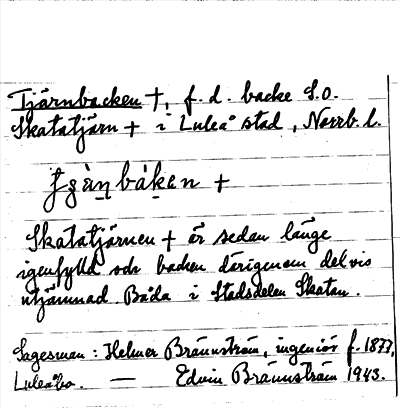 Tjärnbacken †, f. d. backe S.O.
Skatatjärn + i Luleå stad, Norrb. l.
bàken +
Skatatjärnen + är sedan länge
igenfylld och backen därigenom delvis
utjämnad. Båda i Stadsdelen Skatan.
Sagesman: Helmer Brännström, ingeniör f. 1877,
Luleåbo. — Edvin Brännström 1943.